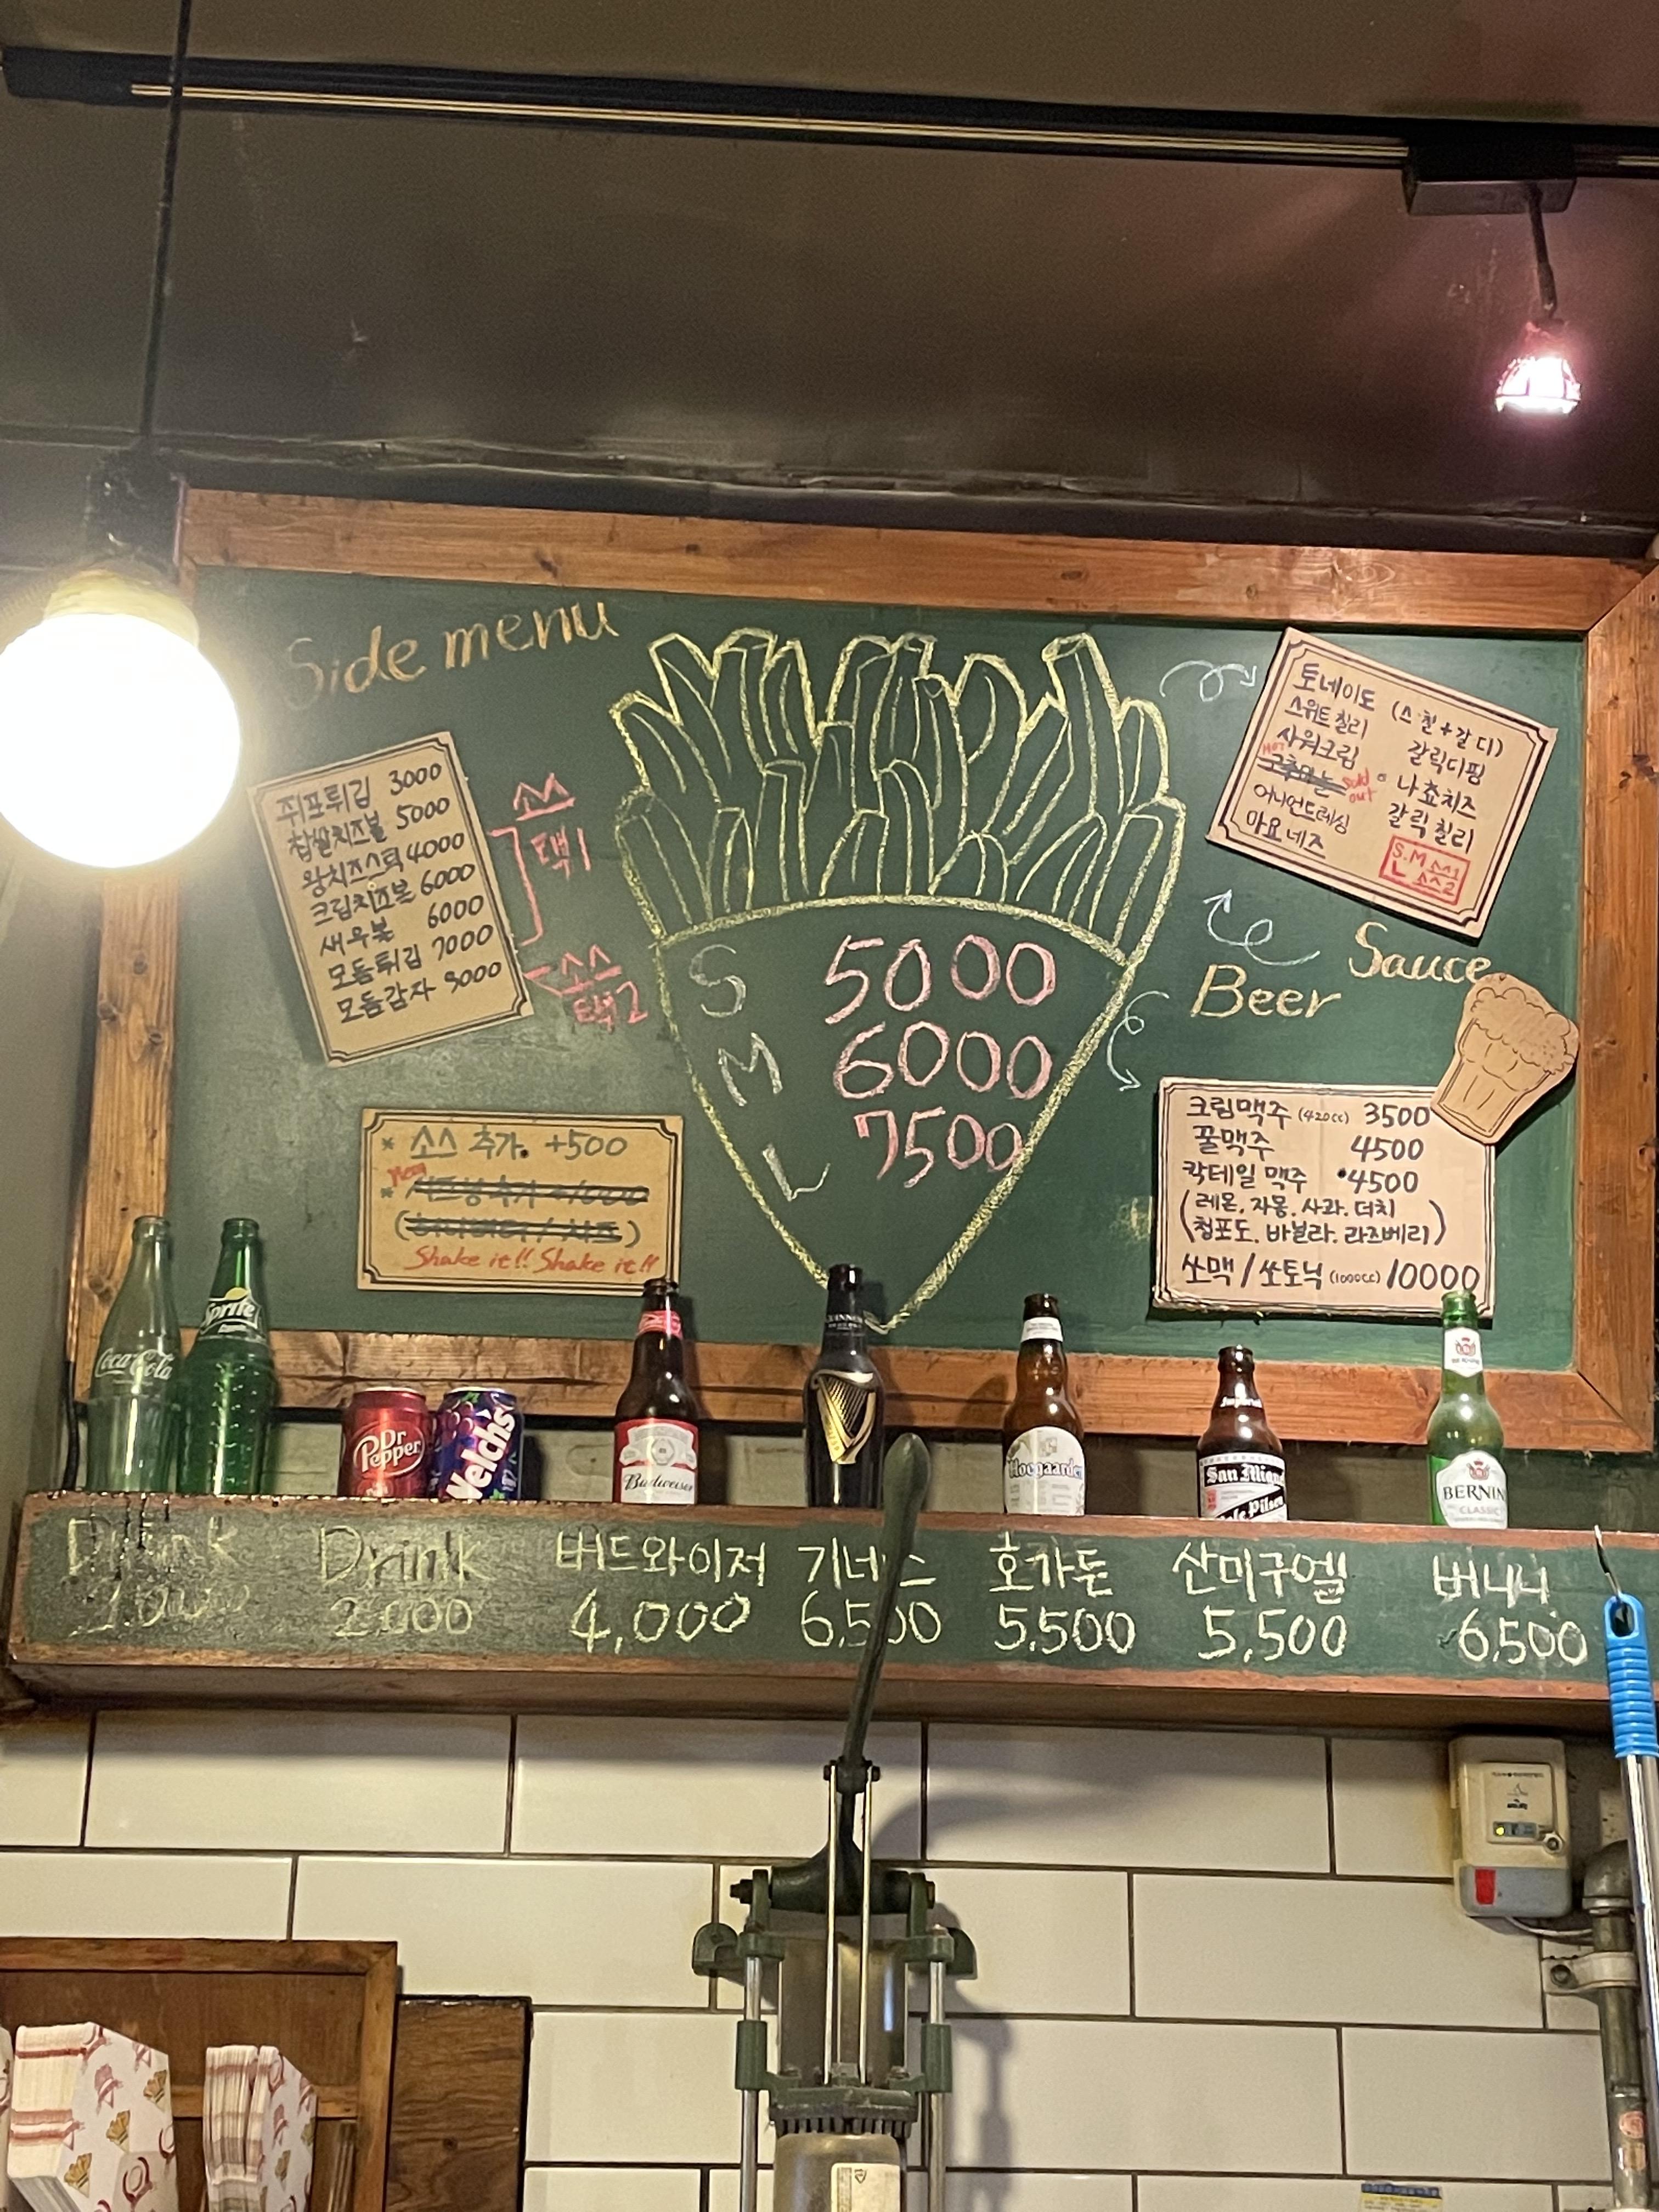 Side menu
쥐포튀김 3000
찹쌀치즈볼 5000
왕치즈스틱 4000
크림치즈볼 6000
새우볼 6000
모듬튀김 7000
모듬감자 9000
소스
택1
소스
택2
* 소스 추가 +500
New
Shake it!! Shake it!!
S 5000
M 6000
L 7500
토네이도 (스칠+갈디)
스위트칠리 갈릭디핑
사워크림 나쵸치즈
Hot
sold out
어니언드레싱 갈릭칠리
마요네즈
S.M 소스1
L 소스2
Sauce
Beer
크림맥주 (420cc) 3500
꿀맥주 4500
칵테일 맥주 4500
(레몬. 자몽. 사과. 더치
청포도. 바닐라. 라즈베리)
쏘맥/쏘토닉 (1000cc) 10000
Coca-Cola
Sprite
Dr Pepper
Welch's
Budweiser
GUINNESS
Hoegaarden
San Miguel
BERNINI
CLASSIC
Drink
Drink
2.000
버드와이저
4,000
기네스
6,500
호가든
5.500
산미구엘
5,500
버니니
6,500